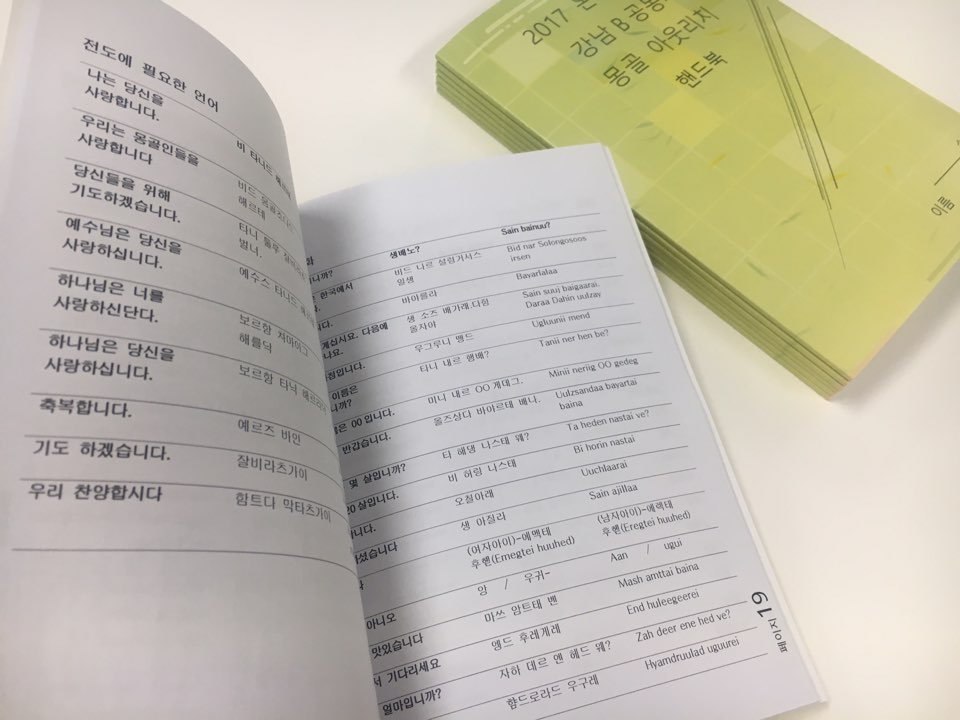 전도에 필요한 언어
나는 당신을
사랑합니다.
비 타나드
우리는 몽골인들을
사랑합니다
비드
해르테
당신들을 위해
기도하겠습니다.
타니
예수님은 당신을
사랑하십니다.
예수스 타나드
하나님은 너를
사랑하신단다.
보르항 차마이그
해를덕
하나님은 당신을
사랑하십니다.
보르항 타닉
축복합니다.
예르즈 바인
기도 하겠습니다.
잘비라츠가이
우리 찬양합시다
함트다 막타츠가이
생배노?
Sain bainuu?
니까?
비드 나르 설렁거서스
일생
Bid nar Solongosoos
irsen
한국에서
니다.
바야를라
Bayarlalaa
계십시요. 다음에
나요.
생 소즈 배가래.다힝
올자야
Sain suuj baigaarai.
Daraa Dahin uulzay
침입니다.
우그루니 맹드
Ugluunii mend
이름은
니까?
타나 내르 행배?
Tanii ner hen be?
은 OO 입니다.
미니 내르 OO 게대그.
Minii neriig OO gedeg
반갑습니다.
올즈상다 바야르태 배나.
Uulzsandaa bayartai
baina
몇 살입니까?
타 해댕 나스태 웨?
Ta heden nastai ve?
20살입니다.
비 허링 나스태
Bi horin nastai
니다.
오칠아래
Uuchlaarai
셨습니다
생 아질라
Sain ajillaa
(여자아이)-에멕태
후헫(Emegtei huuhed)
(남자아이)-에렉태
후헫(Eregtei huuhed)
아니오
앙 / 우귀-
Aan / ugui
맛있습니다
마쓰 암트태 밴
Mash amttai baina
서 기다리세요
앵드 후레게레
End huleegeerei
얼마입니까?
자하 데르 앤 헤드 웨?
Zah deer ene hed ve?
향드로라드 우구레
Hyamdruulad uguurei
페이지 19
2017
강남 B 공동
몽골 아웃리치
핸드북
이름